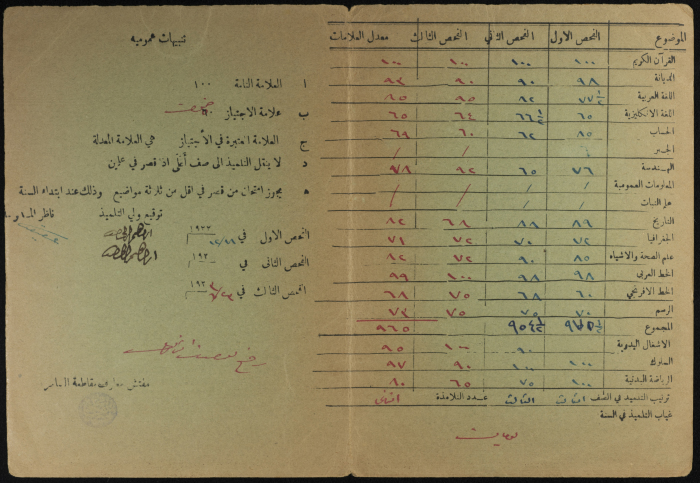 الموضوع الفحص الاول الفحص الثاني الفحص الثالث معدل العلامات
القرآن الكريم ١٠٠ ١٠٠ ١٠٠ ١٠٠
الديانة ٩٨ ٩٠ ٩٠ ٩٣
اللغة العربية ٧٧ ١/٢ ٨٢ ٩٥ ٨٥
اللغة الانكليزية ٦٥ ٦٦ ١/٢ ٦٤ ٦٥
الحساب ٨٥ ٦٢ ٦٠ ٦٩
الجبر
الهندسة ٧٦ ٦٥ ٩٢ ٧٨
المعلومات العمومية / / / /
علم النبات / / / /
التاريخ ٨٩ ٨٨ ٦٨ ٨٢
الجغرافيا ٧٢ ٧٠ ٧٢ ٧١
علم الصحة والاشياء ٨٥ ٩٠ ٧٢ ٨٢
الخط العربي ٩٨ ٩٨ ١٠٠ ٩٩
الخط الافرنجي ٦٠ ٦٨ ٧٥ ٦٨
الرسم ٧٠ ٧٥ ٧٥ ٧٣
المجموع ٩٥٤ ١/٢ ٩٦٥
الاشغال اليدوية ٩٠ ١٠٠ ٩٥
السلوك ١٠٠ ١٠٠ ٩٠ ٩٧
الرياضة البدنية ١٠٠ ٧٥ ٦٥ ٨٠
ترتيب التلميذ في الصف الثالث الثالث عدد التلامذة
غياب التلميذ في السنة
تنبيهات عمومية
ا العلامة التامة ١٠٠
ب علامة الاجتياز
ج العلامة المعتبرة في الاجتياز هي العلامة المعدلة
د لا ينقل التلميذ الى صف أعلى اذا قصر في علمين
ه يجوز امتحان من قصر في اقل من ثلاثة مواضيع وذلك عند ابتداء السنة
توقيع ولي التلميذ ناظر المدرسة
الفحص الاول في
الفحص الثاني في ١٩٢
الفحص الثالث في ١٩٢
مفتش معارف مقاطعة